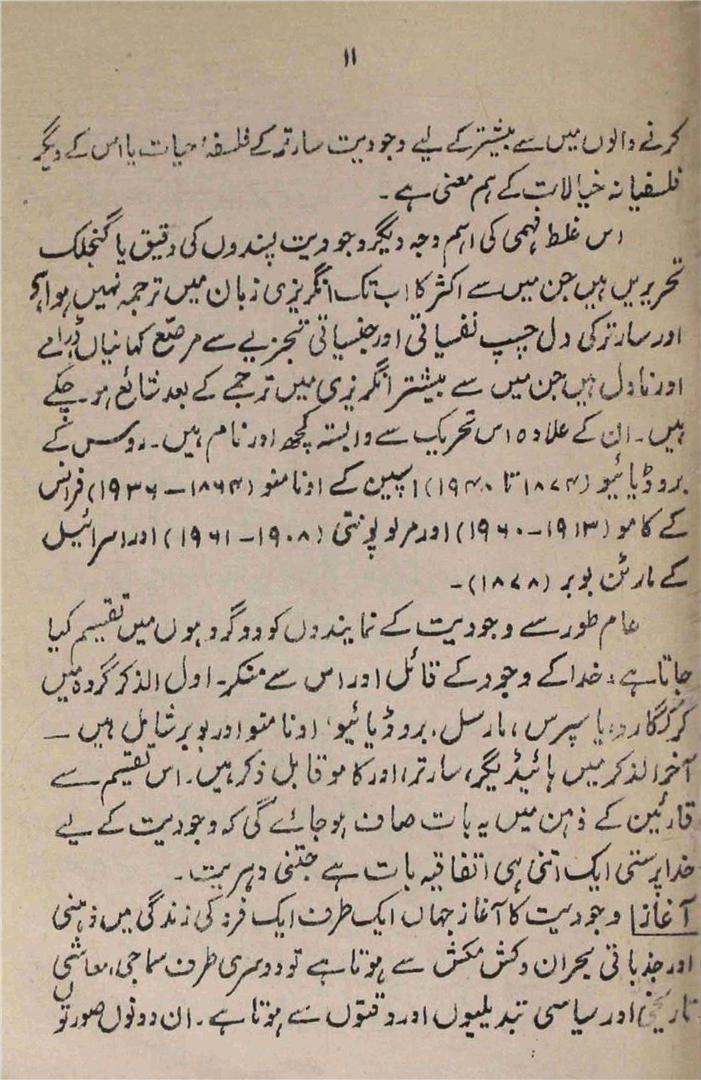 ۱۱
کرنے والوں میں سے بیشتر کے لیے وجودیت سارتر کے فلسفۂ حیات یا اس کے دیگر
فلسفیانہ خیالات کے ہم معنی ہے۔
اس غلط فہمی کی اہم وجہ دیگر وجودیت پسندوں کی دقیق یا گنجلک
تحریریں ہیں جن میں سے اکثر کا اب تک انگریزی زبان میں ترجمہ نہیں ہوا ہے
اور سارتر کی دل چسپ نفسیاتی اور جنسیاتی تجزیے سے مرصّع کہانیاں، ڈرامے
اور ناول ہیں جن میں سے بیشتر انگریزی میں ترجمے کے بعد شائع ہو۔ چکے
ہیں۔ ان کے علاوہ اس تحریک سے وابستہ کچھ اور نام ہیں۔ روس کے
بروڈیائیو (۱۸۷۴ تا ۱۹۴۰) اسپین کے اونامنو (۱۸۶۴ - ۱۹۳۶) فرانس
کے کامو (۱۹۱۳ - ۱۹۶۰) اور مرلوپونتی (۱۹۰۸ - ۱۹۶۱) اور اسرائیل
کے مارٹن بوبر (۱۸۷۸)۔
عام طور سے وجودیت کے نمایندوں کو دو گروہوں میں تقسیم کیا
جاتا ہے، خدا کے وجود کے قائل اور اس سے منکر۔ اول الذکر گروہ میں
کرکیگارد، یاسپرس، مارسل، بروڈیائیو، اونامنو اور بوبر شامل ہیں —
آخر الذکر میں ہائیڈیگر، سارتر، اور کامو قابل ذکر ہیں۔ اس تقسیم سے
قارئین کے ذہن میں یہ بات صاف ہو جائے گی کہ وجودیت کے لیے
خدا پرستی ایک اتنی ہی اتفاقیہ بات ہے جتنی دہریت۔
آغاز| وجودیت کا آغاز جہاں ایک طرف ایک فرد کی زندگی میں ذہنی
اور جذباتی بحران و کش مکش سے ہوتا ہے تو دوسری طرف سماجی، معاشی
تاریخی، اور سیاسی تبدیلیوں اور وقتوں سے ہوتا ہے۔ ان دونوں صورتوں